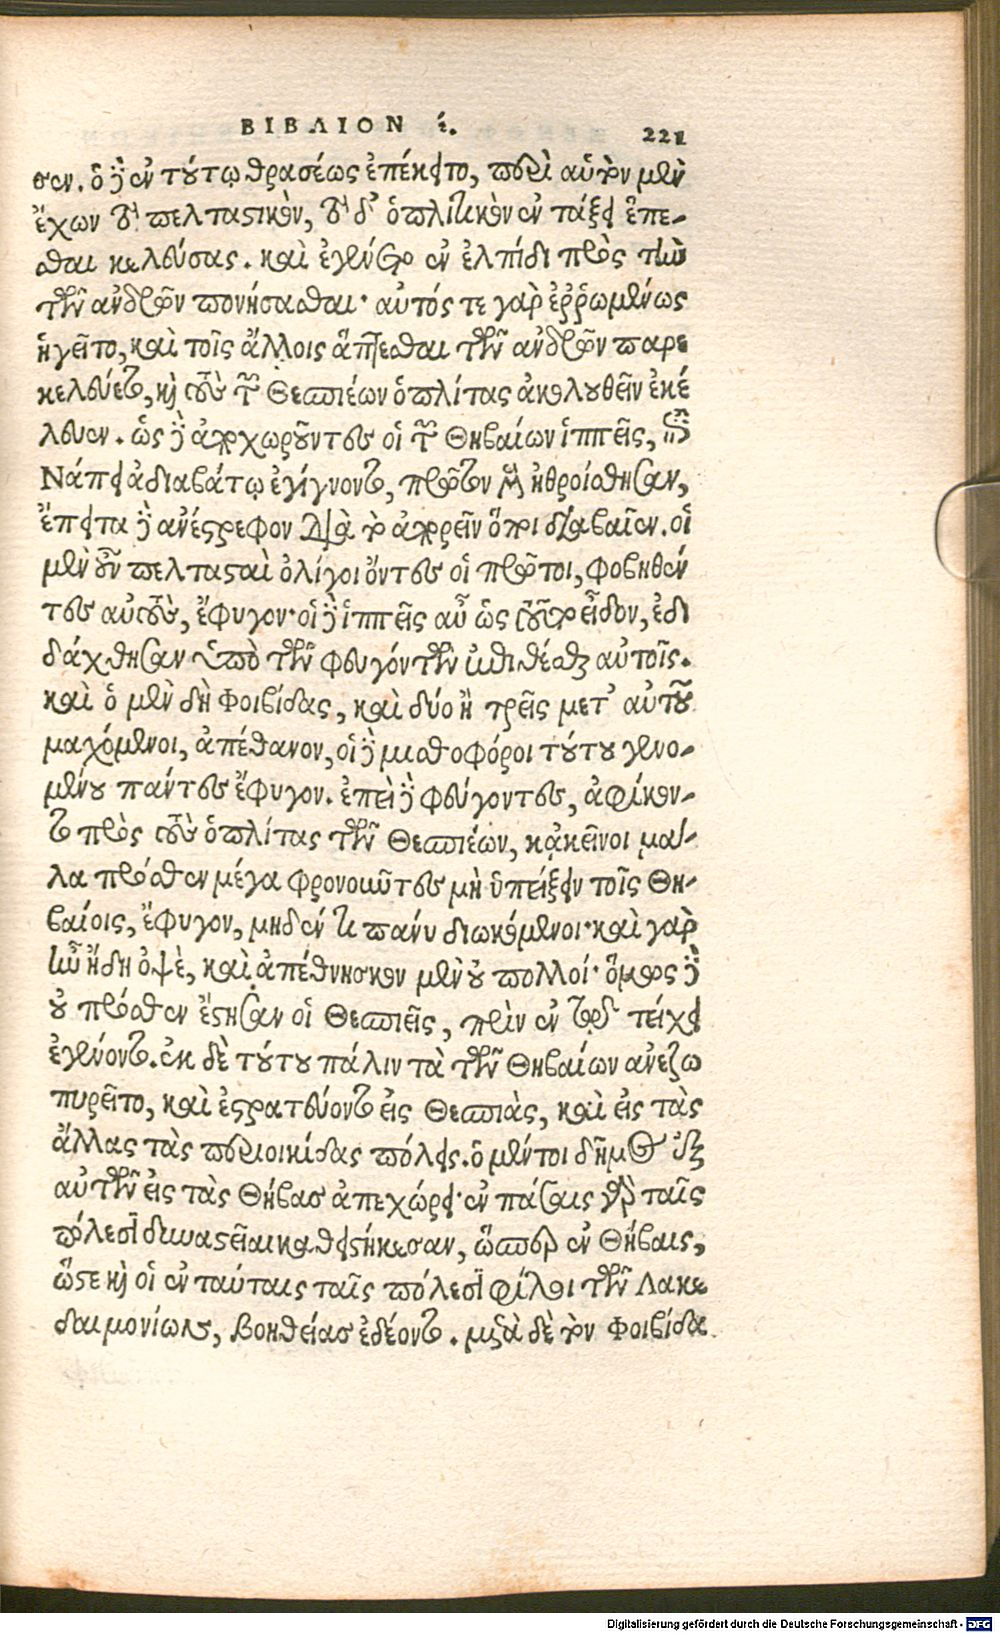 ΒΙΒΛΙΟΝ έ. 221
σεν. ὁ δὲ ἐν τούτῳ θρασέως ἐπέκειτο, περὶ αὑτὸν μὲν
ἔχων τὸ πελταστικὸν, τὸ δ' ὁπλιτικὸν ἐν τάξει ἕπε-
σθαι κελεύσας. καὶ ἐγένετο ἐν ἐλπίδι πρὸς τὴν
τῶν ἀνδρῶν πονήσασθαι· αὐτός τε γὰρ ἐῤῥωμένως
ἡγεῖτο, καὶ τοῖς ἄλλοις ἅπτεσθαι τῶν ἀνδρῶν παρε
κελεύετο, καὶ τοὺς τῶν Θεσπιέων ὁπλίτας ἀκολουθεῖν ἐκέ
λευεν. ὡς δὲ ἀποχωροῦντες οἱ τῶν Θηβαίων ἱππεῖς, ἐπὶ
Νάπει ἀδιαβάτῳ ἐγίγνοντο, πρῶτον μὲν ἠθροίσθησαν,
ἔπειτα δὲ ἀνέστρεφον διὰ τὸ ἀπορεῖν ὅποι διαβαῖεν. οἱ
μὲν οὖν πελτασταὶ ὀλίγοι ὄντες οἱ πρῶτοι, φοβηθέν
τες αὐτοὺς, ἔφυγον· οἱ δὲ ἱππεῖς αὖ ὡς τοῦτο εἶδον, ἐδι
δάχθησαν ὑπὸ τῶν φευγόντων ἐπιθέσθαι αὐτοῖς.
καὶ ὁ μὲν δὴ Φοιβίδας, καὶ δύο ἢ τρεῖς μετ' αὐτοῦ
μαχόμενοι, ἀπέθανον, οἱ δὲ μισθοφόροι τούτου γενο-
μένου πάντες ἔφυγον. ἐπεὶ δὲ φεύγοντες, ἀφίκον-
το πρὸς τοὺς ὁπλίτας τῶν Θεσπιέων, κἀκεῖνοι μάλ-
λα πρόσθεν μέγα φρονοῦντες μὴ ὑπείξειν τοῖς Θη-
βαίοις, ἔφυγον, μηδέν τι πάνυ διωκόμενοι· καὶ γὰρ
ἦν ἤδη ὀψὲ, καὶ ἀπέθνησκον μὲν οὐ πολλοί· ὅμως δὲ
οὐ πρόσθεν ἔστησαν οἱ Θεσπιεῖς, πρὶν ἐν τῷ τείχει
ἐγένοντο. ἐκ δὲ τούτου πάλιν τὰ τῶν Θηβαίων ἀνεζω
πυρεῖτο, καὶ ἐστρατεύοντο εἰς Θεσπιὰς, καὶ εἰς τὰς
ἄλλας τὰς περιοικίδας πόλεις. ὁ μέντοι δῆμος ἐξ
αὐτῶν εἰς τὰς Θήβας ἀπεχώρει· ἐν πάσαις γὰρ ταῖς
πόλεσι δυναστεῖαι καθειστήκεσαν, ὥσπερ ἐν Θήβαις,
ὥστε καὶ οἱ ἐν ταύταις ταῖς πόλεσι φίλοι τῶν Λακε
δαιμονίων, βοηθείας ἐδέοντο. μετὰ δὲ τὸν Φοιβίδα
Digitalisierung gefördert durch die Deutsche Forschungsgemeinschaft - DFG